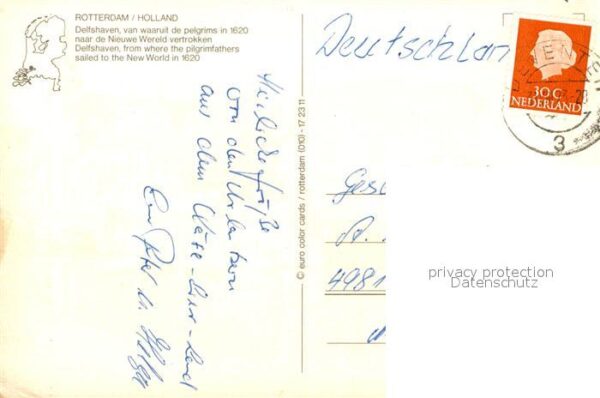 ROTTERDAM / HOLLAND
Delfshaven, van waaruit de pelgrims in 1620
naar de Nieuwe Wereld vertrokken
Delfshaven, from where the pilgrimfathers
sailed to the New World in 1620
Herzliche Grüße
von den Urlaubern
aus dem Käse-Eier-Land
Peter u.
© euro color cards / rotterdam (010) - 17 23 11
Deutschlan
30 C
NEDERLAND
3
Gesc
A.
4981
privacy protection
Datenschutz